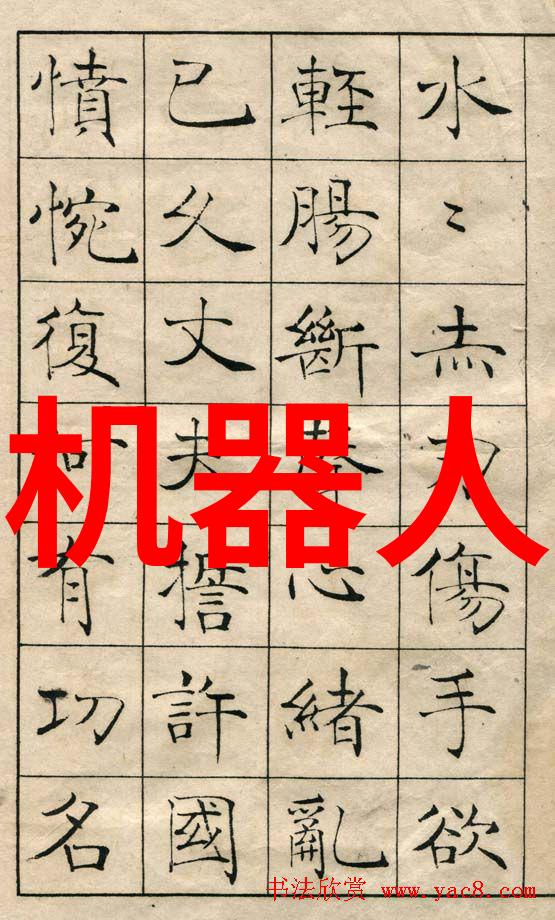 水〻赤刃傷手欲
輕腸斷聲心緒亂
已久丈夫誓許國
憤惋復何有功名
机器人
书法欣赏 www.yac8.com